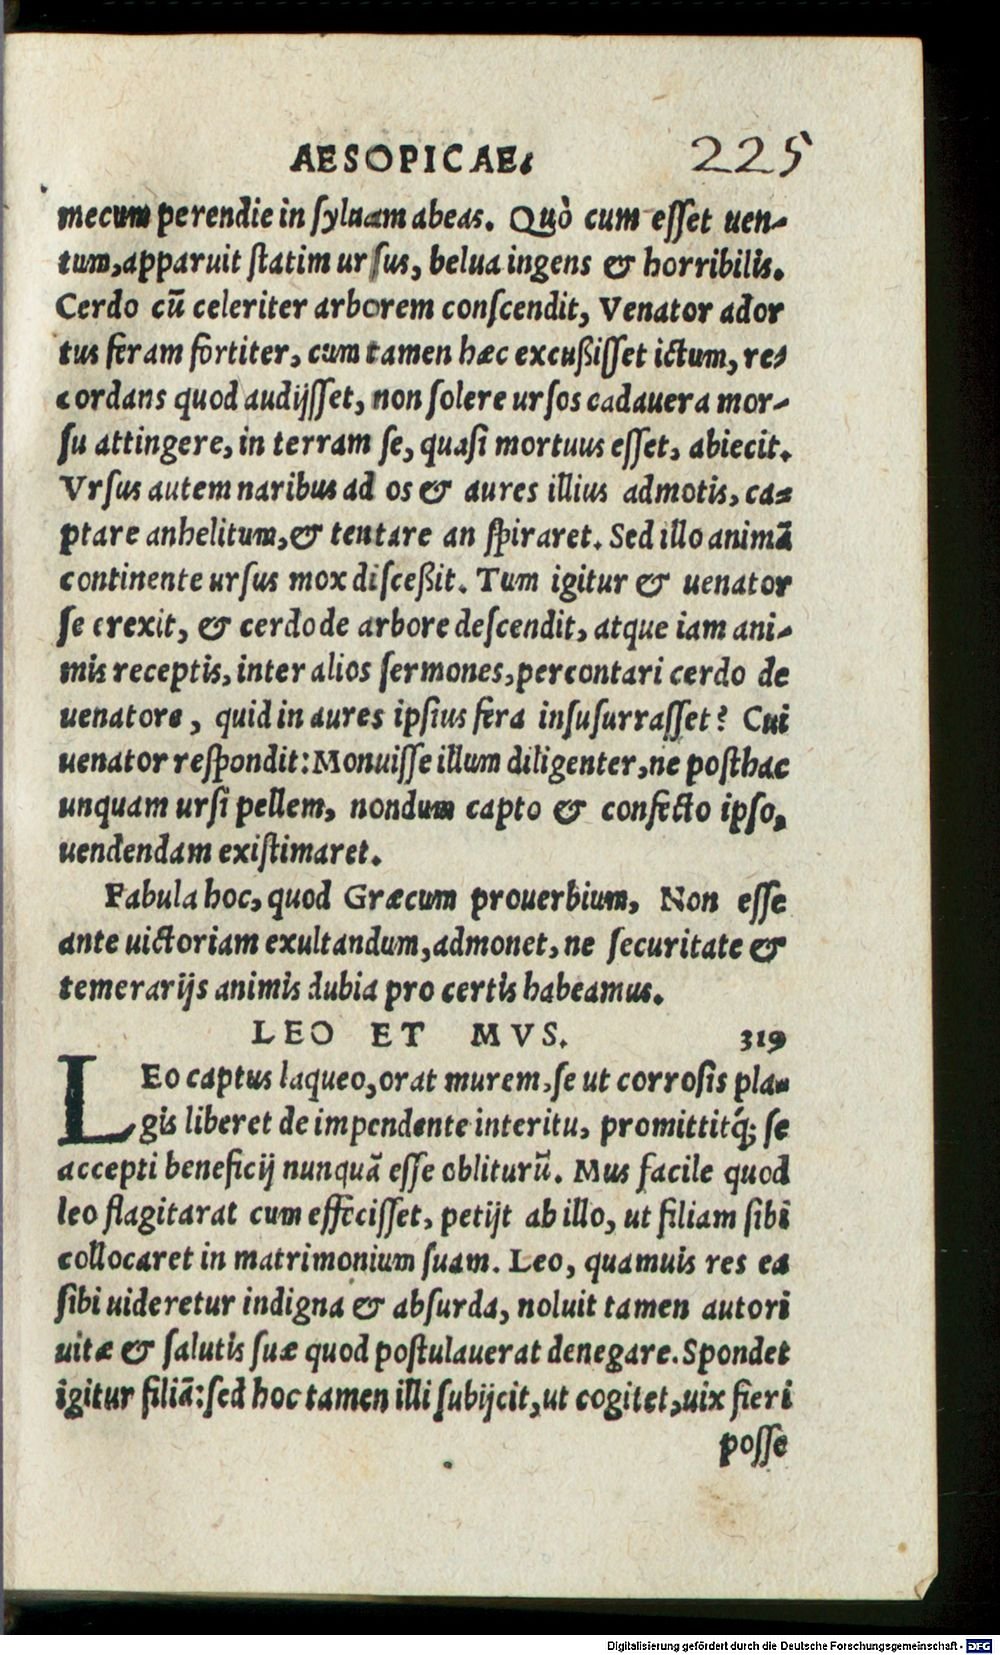 AESOPICAE. 225
mecum perendie in ſyluam abeas. Quò cum eſſet uen-
tum, apparuit ſtatim urſus, belua ingens & horribilis.
Cerdo cū celeriter arborem conſcendit, Venator ador
tus feram fortiter, cum tamen hæc excußiſſet ictum, re-
cordans quod audijſſet, non ſolere urſos cadauera mor-
ſu attingere, in terram ſe, quaſi mortuus eſſet, abiecit.
Vrſus autem naribus ad os & aures illius admotis, ca-
ptare anhelitum, & tentare an ſpiraret. Sed illo animā
continente urſus mox diſceßit. Tum igitur & uenator
ſe erexit, & cerdo de arbore deſcendit, atque iam ani-
mis receptis, inter alios ſermones, percontari cerdo de
uenatore, quid in aures ipſius fera inſuſurraſſet? Cui
uenator reſpondit: Monuiſſe illum diligenter, ne poſthac
unquam urſi pellem, nondum capto & confecto ipſo,
uendendam exiſtimaret.
Fabula hoc, quod Græcum prouerbium, Non eſſe
ante uictoriam exultandum, admonet, ne ſecuritate &
temerarijs animis dubia pro certis habeamus.
LEO ET MVS. 319
LEo captus laqueo, orat murem, ſe ut corroſis pla-
gis liberet de impendente interitu, promittitq́; ſe
accepti beneficij nunquā eſſe obliturū. Mus facile quod
leo flagitarat cum effeciſſet, petijt ab illo, ut filiam ſibi
collocaret in matrimonium ſuam. Leo, quamuis res ea
ſibi uideretur indigna & abſurda, noluit tamen autori
uitæ & ſalutis ſuæ quod poſtulauerat denegare. Spondet
igitur filiā: ſed hoc tamen illi ſubijcit, ut cogitet, uix fieri
poſſe
Digitalisierung gefördert durch die Deutsche Forschungsgemeinschaft - DFG